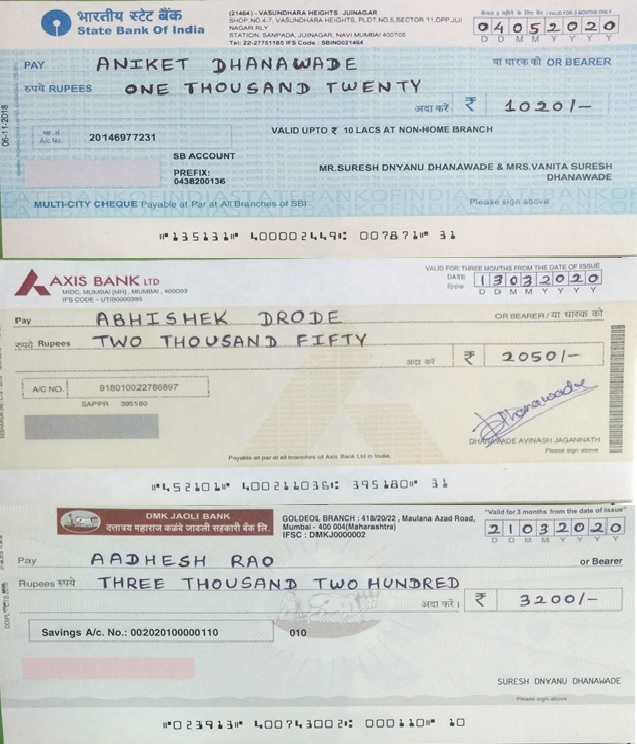 भारतीय स्टेट बैंक
State Bank Of India
(21464) - VASUNDHARA HEIGHTS JUINAGAR
SHOP NO.4-7, VASUNDHARA HEIGHTS, PLOT NO.5,SECTOR 11,OPP.JUI
NAGAR RLY
STATION, SANPADA, JUINAGAR, NAVI MUMBAI 400705
Tel: 22-27751185 IFS Code : SBIN0021464
VALID FOR 3 MONTHS ONLY
04052020
D D M M Y Y Y Y
PAY ANIKET DHANAWADE या धारक को OR BEARER
रुपये RUPEES ONE THOUSAND TWENTY
अदा करें ₹ 1020/-
06-11-2018
A/c No. 20146977231
VALID UPTO ₹ 10 LACS AT NON-HOME BRANCH
SB ACCOUNT
PREFIX:
0438200136
MR.SURESH DNYANU DHANAWADE & MRS.VANITA SURESH
DHANAWADE
MULTI-CITY CHEQUE Payable at Par at All Branches of SBI
Please sign above
⑈135131⑈ 400002449⑆ 007871⑈ 31
AXIS BANK LTD
MIDC, MUMBAI [MH], MUMBAI , 400093
VALID FOR THREE MONTHS FROM THE DATE OF ISSUE
DATE 13032020
दिनांक D D M M Y Y Y Y
Pay ABHISHEK DRODE OR BEARER/या धारक को
रुपये Rupees TWO THOUSAND FIFTY
अदा करें ₹ 2050/-
A/C NO. 918010022786897
SAPPR 395180
Dhanawade
DHANAWADE AVINASH JAGANNATH
Payable at par at all branches of Axis Bank Ltd in India.
Please sign above
⑈452101⑈ 400211036⑆ 395180⑈ 31
DMK JAOLI BANK
दत्तात्रय महाराज कळंबे जावली सहकारी बँक लि.
GOLDEOL BRANCH : 418/20/22 , Maulana Azad Road,
Mumbai - 400 004(Maharashtra)
IFSC : DMKJ0000002
"Valid for 3 months from the date of issue"
21032020
D D M M Y Y Y Y
Pay AADHESH RAO or Bearer
Rupees रुपये THREE THOUSAND TWO HUNDRED
अदा करें । ₹ 3200/-
Savings A/c. No.: 002020100000110 010
SURESH DNYANU DHANAWADE
Please sign above
⑈023913⑈ 400743002⑆ 000110⑈ 10